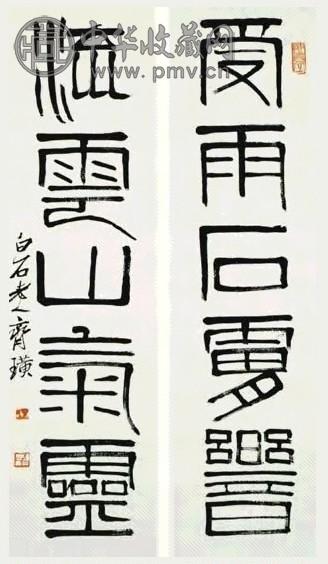 中华收藏网
www.pmv.cn
受雨石響
雲山氣靈
白石老人齊璜